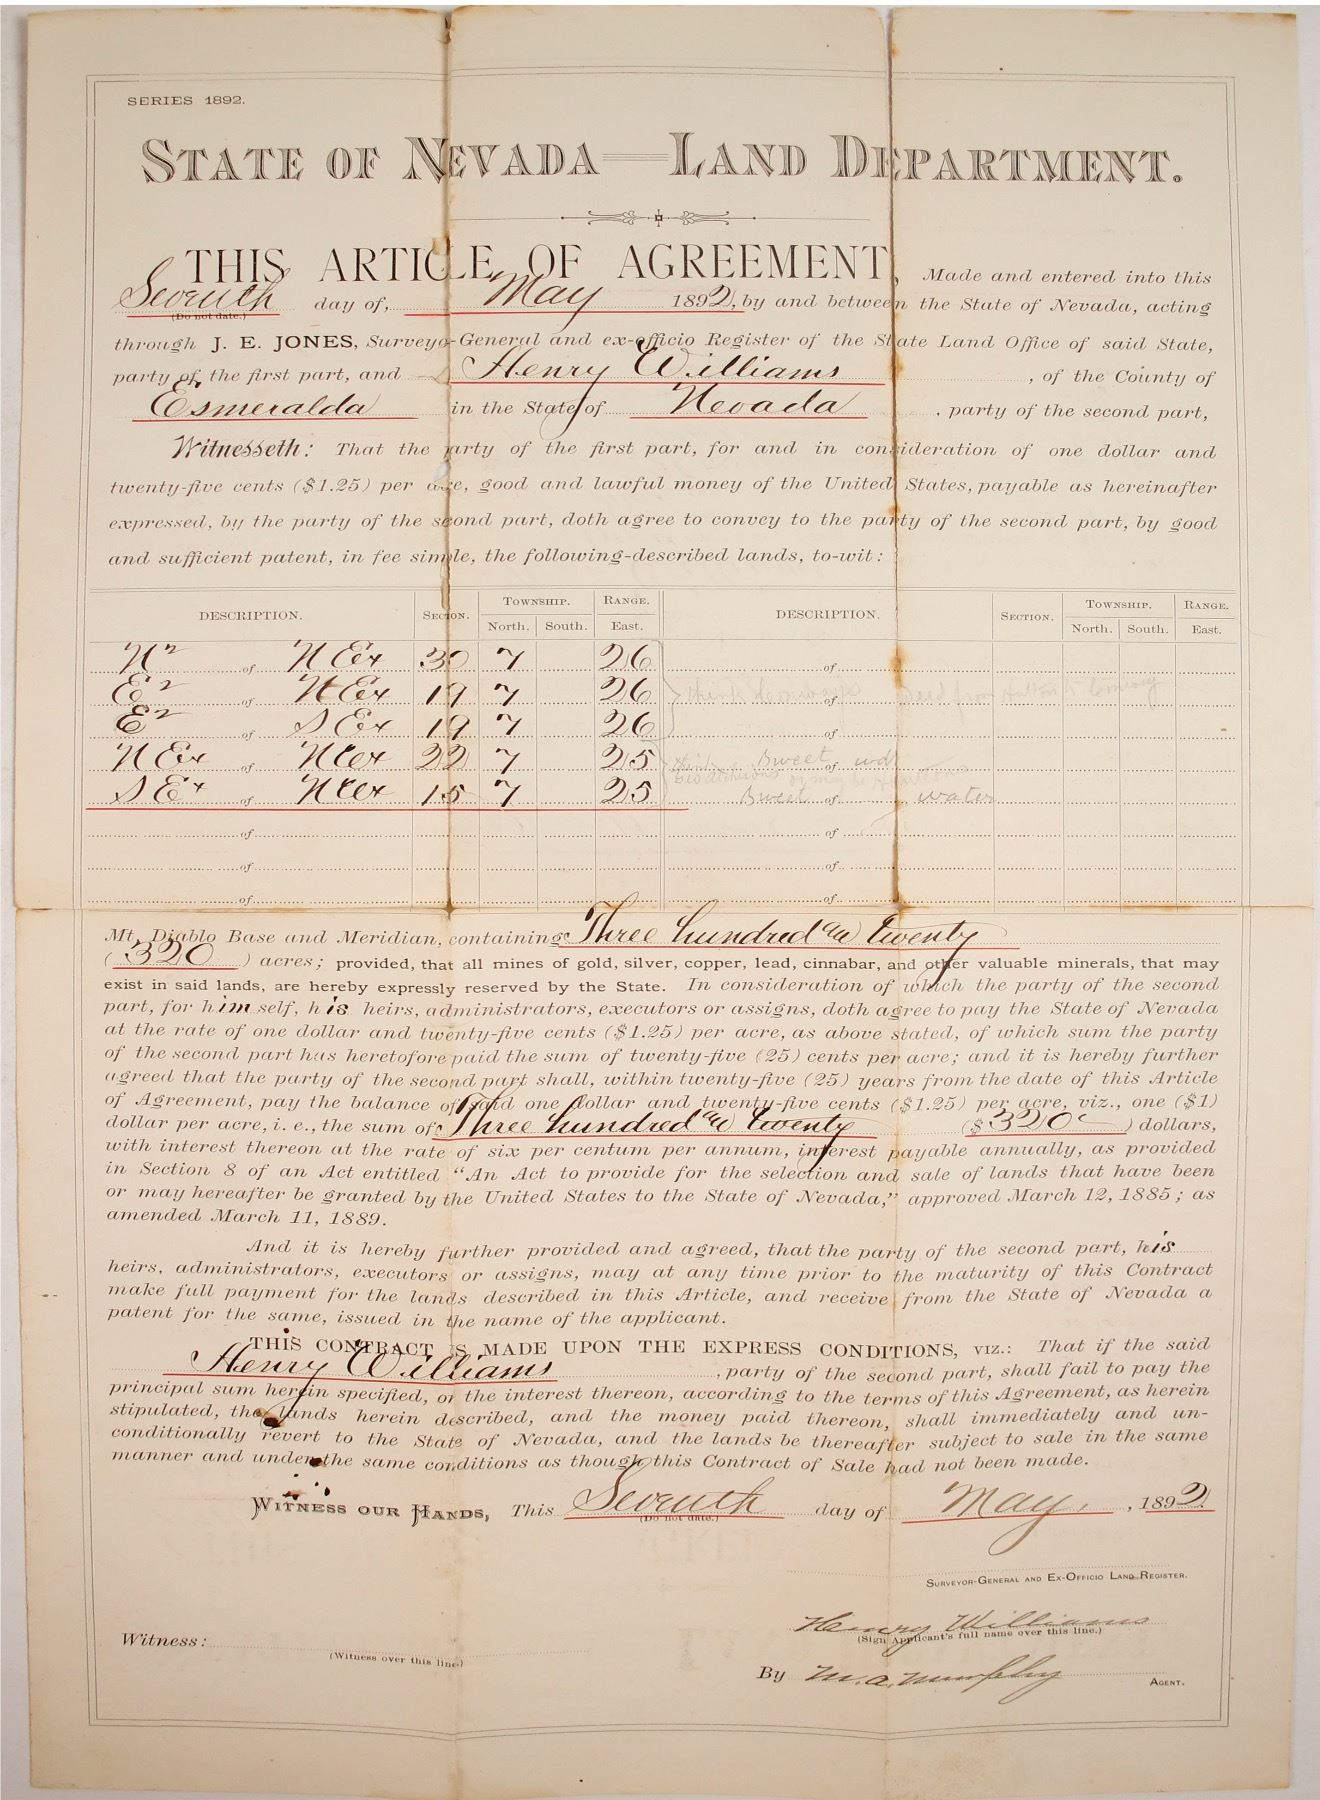 SERIES 1892.
STATE OF NEVADA — LAND DEPARTMENT.
THIS ARTICLE OF AGREEMENT, Made and entered into this
Seventh day of, May 1892, by and between the State of Nevada, acting
(Do not date.)
through J. E. JONES, Surveyor-General and ex-officio Register of the State Land Office of said State,
party of the first part, and Henry Williams, of the County of
Esmeralda in the State of Nevada, party of the second part,
Witnesseth: That the party of the first part, for and in consideration of one dollar and
twenty-five cents ($1.25) per acre, good and lawful money of the United States, payable as hereinafter
expressed, by the party of the second part, doth agree to convey to the party of the second part, by good
and sufficient patent, in fee simple, the following-described lands, to-wit:
DESCRIPTION. SECTION. TOWNSHIP. RANGE. DESCRIPTION. SECTION. TOWNSHIP. RANGE.
North. South. East. North. South. East.
N2 of NE4 30 7 26 of
E2 of NE4 19 7 26 of
E2 of SE4 19 7 26 of
NE4 of NW4 22 7 25 Sweet of
SE4 of NW4 15 7 25 Sweet of water
of of
of of
of of
Mt. Diablo Base and Meridian, containing Three hundred and twenty
(320) acres; provided, that all mines of gold, silver, copper, lead, cinnabar, and other valuable minerals, that may
exist in said lands, are hereby expressly reserved by the State. In consideration of which the party of the second
part, for himself, his heirs, administrators, executors or assigns, doth agree to pay the State of Nevada
at the rate of one dollar and twenty-five cents ($1.25) per acre, as above stated, of which sum the party
of the second part has heretofore paid the sum of twenty-five (25) cents per acre; and it is hereby further
agreed that the party of the second part shall, within twenty-five (25) years from the date of this Article
of Agreement, pay the balance of said one dollar and twenty-five cents ($1.25) per acre, viz., one ($1)
dollar per acre, i. e., the sum of Three hundred and twenty ($320) dollars,
with interest thereon at the rate of six per centum per annum, interest payable annually, as provided
in Section 8 of an Act entitled "An Act to provide for the selection and sale of lands that have been
or may hereafter be granted by the United States to the State of Nevada," approved March 12, 1885; as
amended March 11, 1889.
And it is hereby further provided and agreed, that the party of the second part, his
heirs, administrators, executors or assigns, may at any time prior to the maturity of this Contract
make full payment for the lands described in this Article, and receive from the State of Nevada a
patent for the same, issued in the name of the applicant.
THIS CONTRACT IS MADE UPON THE EXPRESS CONDITIONS, VIZ.: That if the said
Henry Williams, party of the second part, shall fail to pay the
principal sum herein specified, or the interest thereon, according to the terms of this Agreement, as herein
stipulated, the lands herein described, and the money paid thereon, shall immediately and un-
conditionally revert to the State of Nevada, and the lands be thereafter subject to sale in the same
manner and under the same conditions as though this Contract of Sale had not been made.
WITNESS OUR HANDS, This Seventh day of May, 1892
(Do not date.)
SURVEYOR-GENERAL AND EX-OFFICIO LAND REGISTER.
Henry Williams
Witness: (Sign Applicant's full name over this line.)
(Witness over this line)
By M. A. Murphy AGENT.